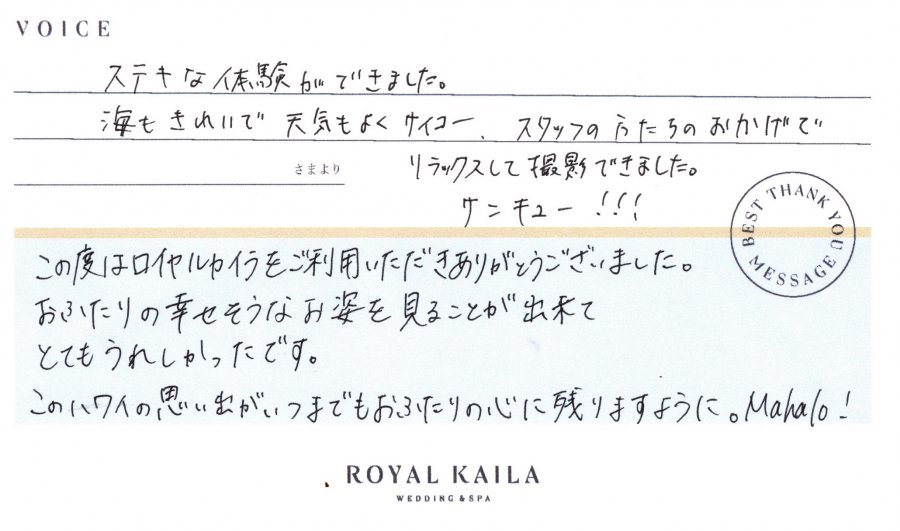 VOICE
ステキな体験ができました。
海もきれいで 天気もよくサイコー、スタッフの方たちのおかげで
さまより
リラックスして撮影できました。
サンキュー!!!
BEST THANK YOU MESSAGE
この度はロイヤルカイラをご利用いただきありがとうございました。
おふたりの幸せそうなお姿を見ることが出来て
とてもうれしかったです。
このハワイの思い出がいつまでもおふたりの心に残りますように。Mahalo!
ROYAL KAILA
WEDDING & SPA